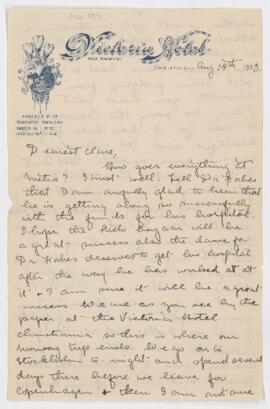 Victoria Hotel
Christiania Aug 14th 1923
Dearest Clare,
How goes everything at
Metis? I trust well. Tell Dr Fahes
that I am awfully glad to hear that
he is getting along so successfully
with the funds for his hospital.
I hope the Kids bazaar will be
a great success also the dance for
Dr Fahes deserves to get his hospital
after the way he has worked at
it. I am sure it will be a great
success. We are as you see by the
paper at the Victoria Hotel
Christiania so this is where our
Norway trip ends. We go on to
Stockholm to-night and spend several
days there before we leave for
Copenhagen & then I am